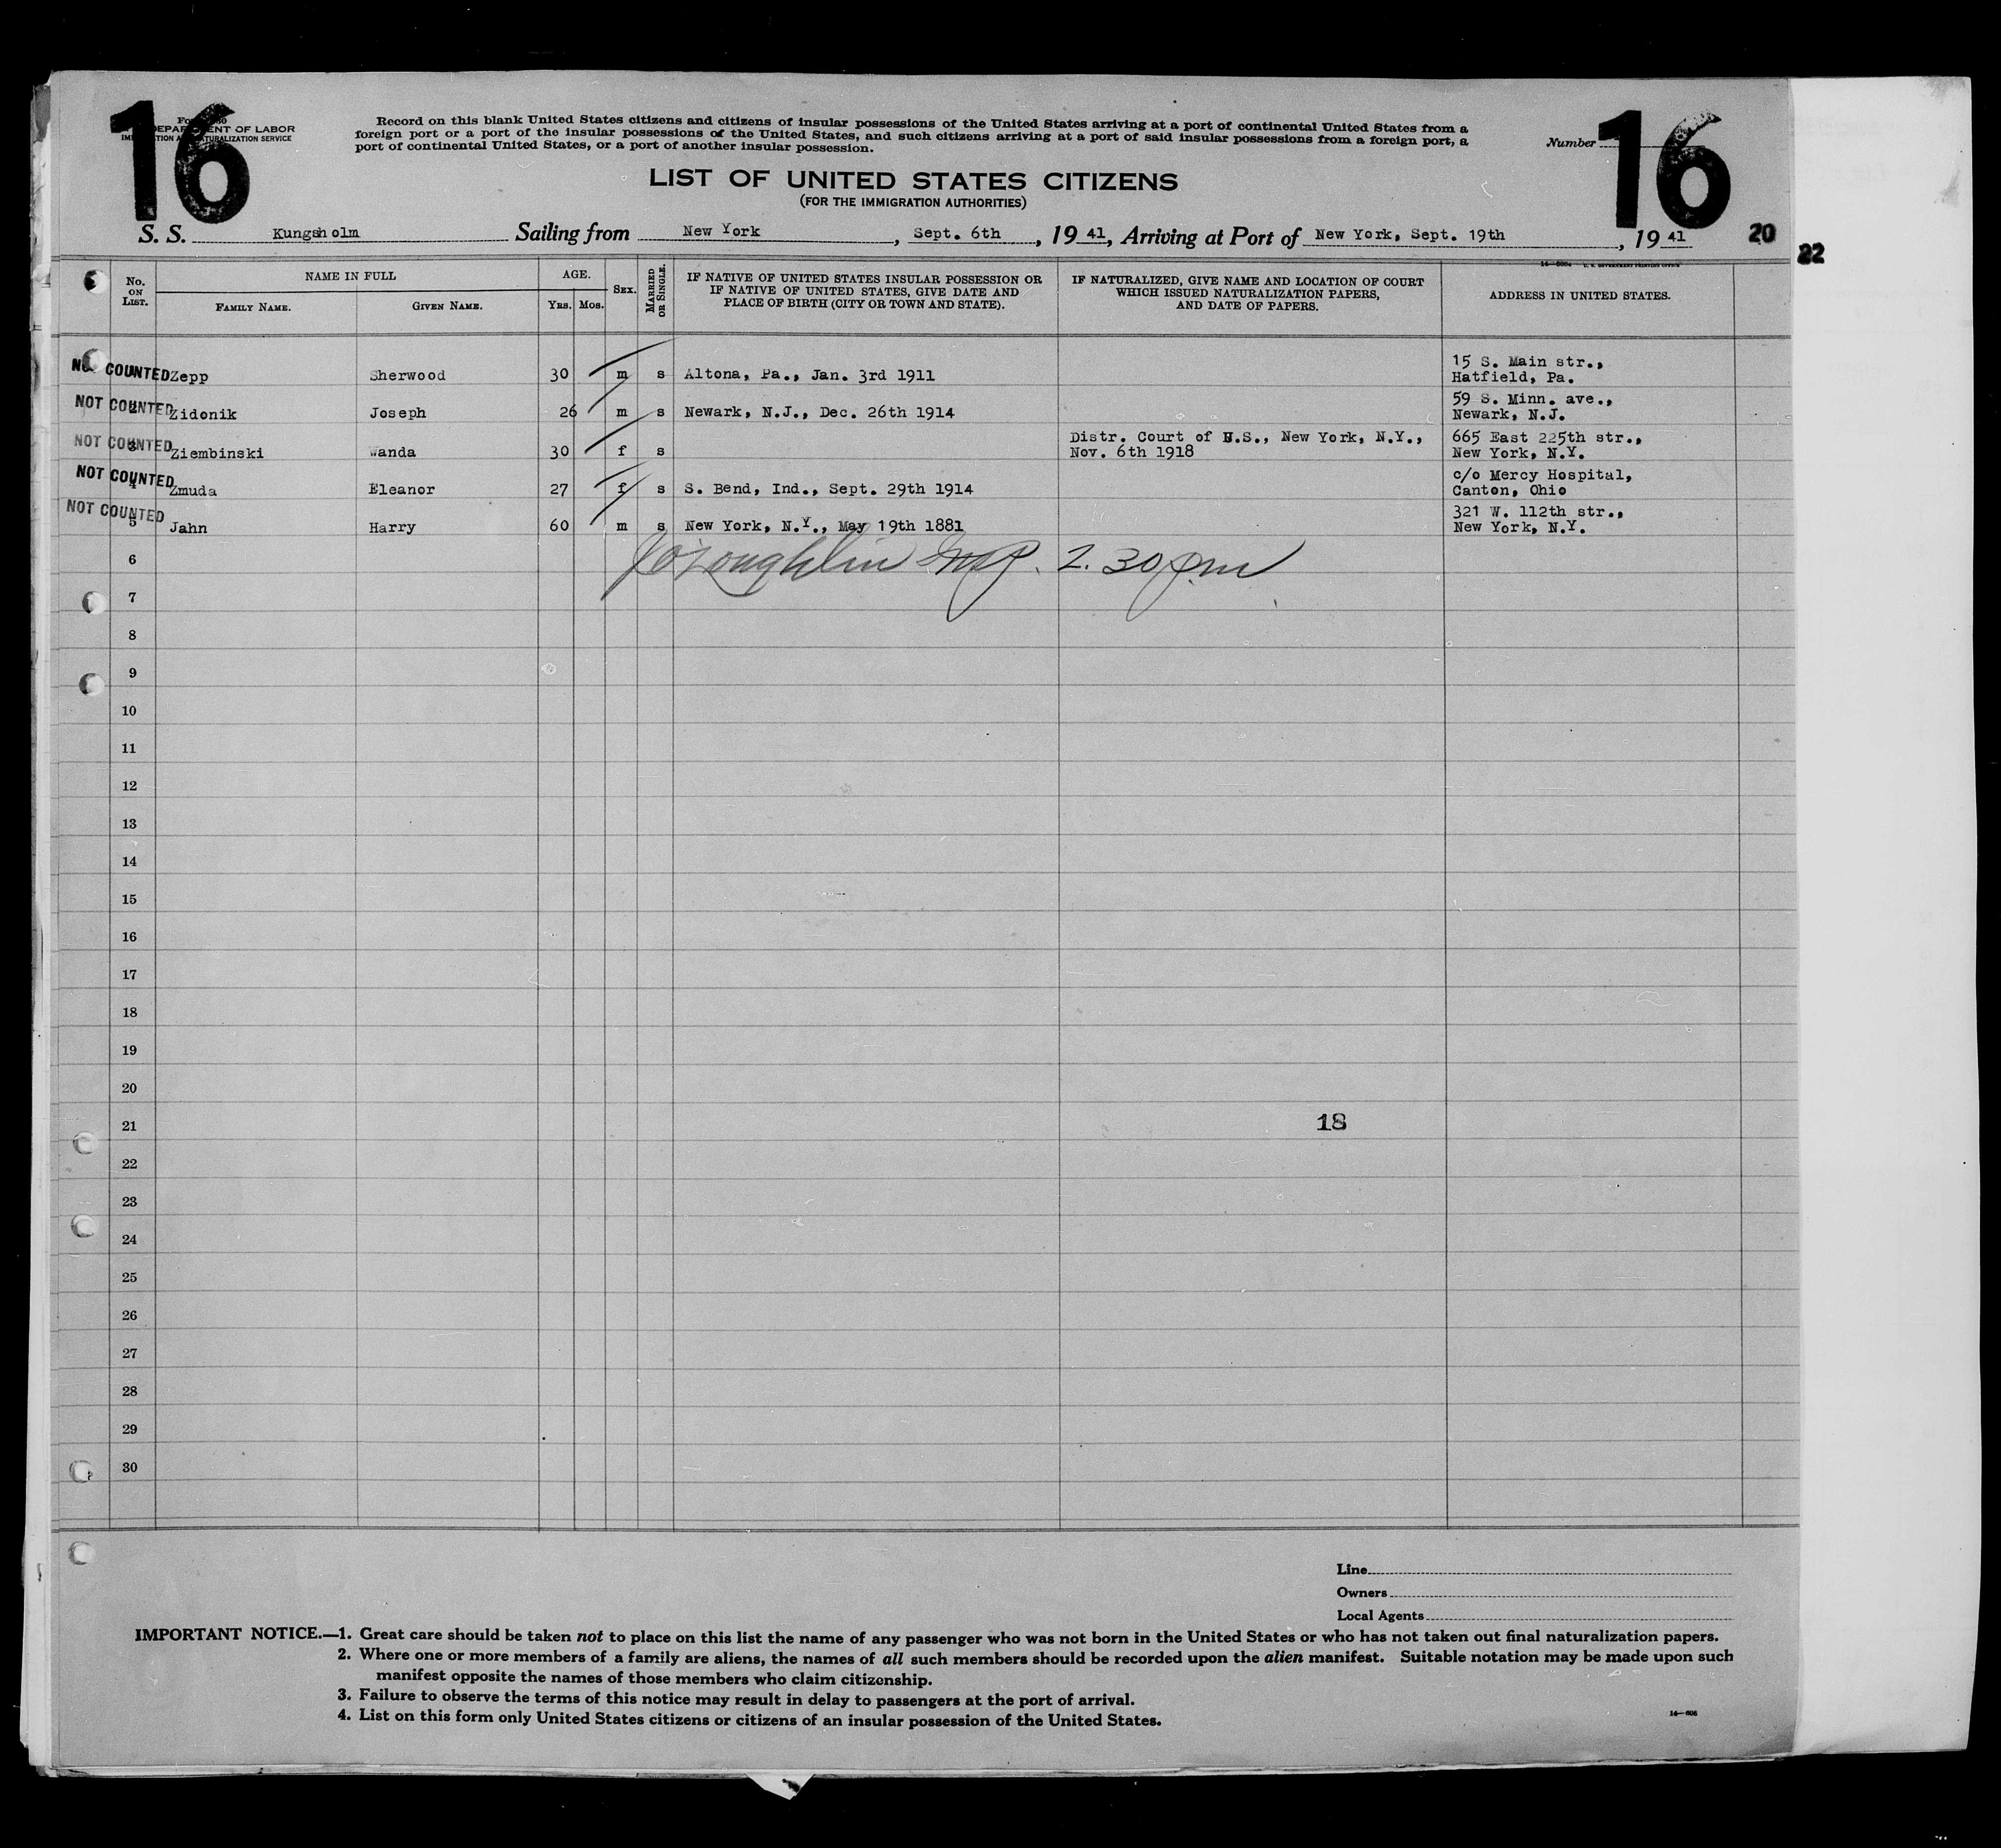 16
DEPARTMENT OF LABOR
IMMIGRATION AND NATURALIZATION SERVICE
Record on this blank United States citizens and citizens of insular possessions of the United States arriving at a port of continental United States from a
foreign port or a port of the insular possessions of the United States, and such citizens arriving at a port of said insular possessions from a foreign port, a
port of continental United States, or a port of another insular possession.
Number 16
LIST OF UNITED STATES CITIZENS
(FOR THE IMMIGRATION AUTHORITIES)
S. S. Kungsholm Sailing from New York, Sept. 6th, 19 41, Arriving at Port of New York, Sept. 19th, 19 41
20
22
No. ON LIST. NAME IN FULL FAMILY NAME. GIVEN NAME. AGE. YRS. MOS. SEX. MARRIED OR SINGLE. IF NATIVE OF UNITED STATES INSULAR POSSESSION OR IF NATIVE OF UNITED STATES, GIVE DATE AND PLACE OF BIRTH (CITY OR TOWN AND STATE). IF NATURALIZED, GIVE NAME AND LOCATION OF COURT WHICH ISSUED NATURALIZATION PAPERS, AND DATE OF PAPERS. ADDRESS IN UNITED STATES.
NOT COUNTED Zepp Sherwood 30 m s Altona, Pa., Jan. 3rd 1911 15 S. Main str., Hatfield, Pa.
NOT COUNTED 2 Zidonik Joseph 26 m s Newark, N.J., Dec. 26th 1914 59 S. Minn. ave., Newark, N.J.
NOT COUNTED 3 Ziembinski Wanda 30 f s Distr. Court of U.S., New York, N.Y., Nov. 6th 1918 665 East 225th str., New York, N.Y.
NOT COUNTED 4 Zmuda Eleanor 27 f s S. Bend, Ind., Sept. 29th 1914 c/o Mercy Hospital, Canton, Ohio
NOT COUNTED 5 Jahn Harry 60 m s New York, N.Y., May 19th 1881 321 W. 112th str., New York, N.Y.
6 O'Loughlin Insp. 2.30 pm
7
8
9
10
11
12
13
14
15
16
17
18
19
20
21 18
22
23
24
25
26
27
28
29
30
Line
Owners
Local Agents
IMPORTANT NOTICE.—1. Great care should be taken not to place on this list the name of any passenger who was not born in the United States or who has not taken out final naturalization papers.
2. Where one or more members of a family are aliens, the names of all such members should be recorded upon the alien manifest. Suitable notation may be made upon such
manifest opposite the names of those members who claim citizenship.
3. Failure to observe the terms of this notice may result in delay to passengers at the port of arrival.
4. List on this form only United States citizens or citizens of an insular possession of the United States.